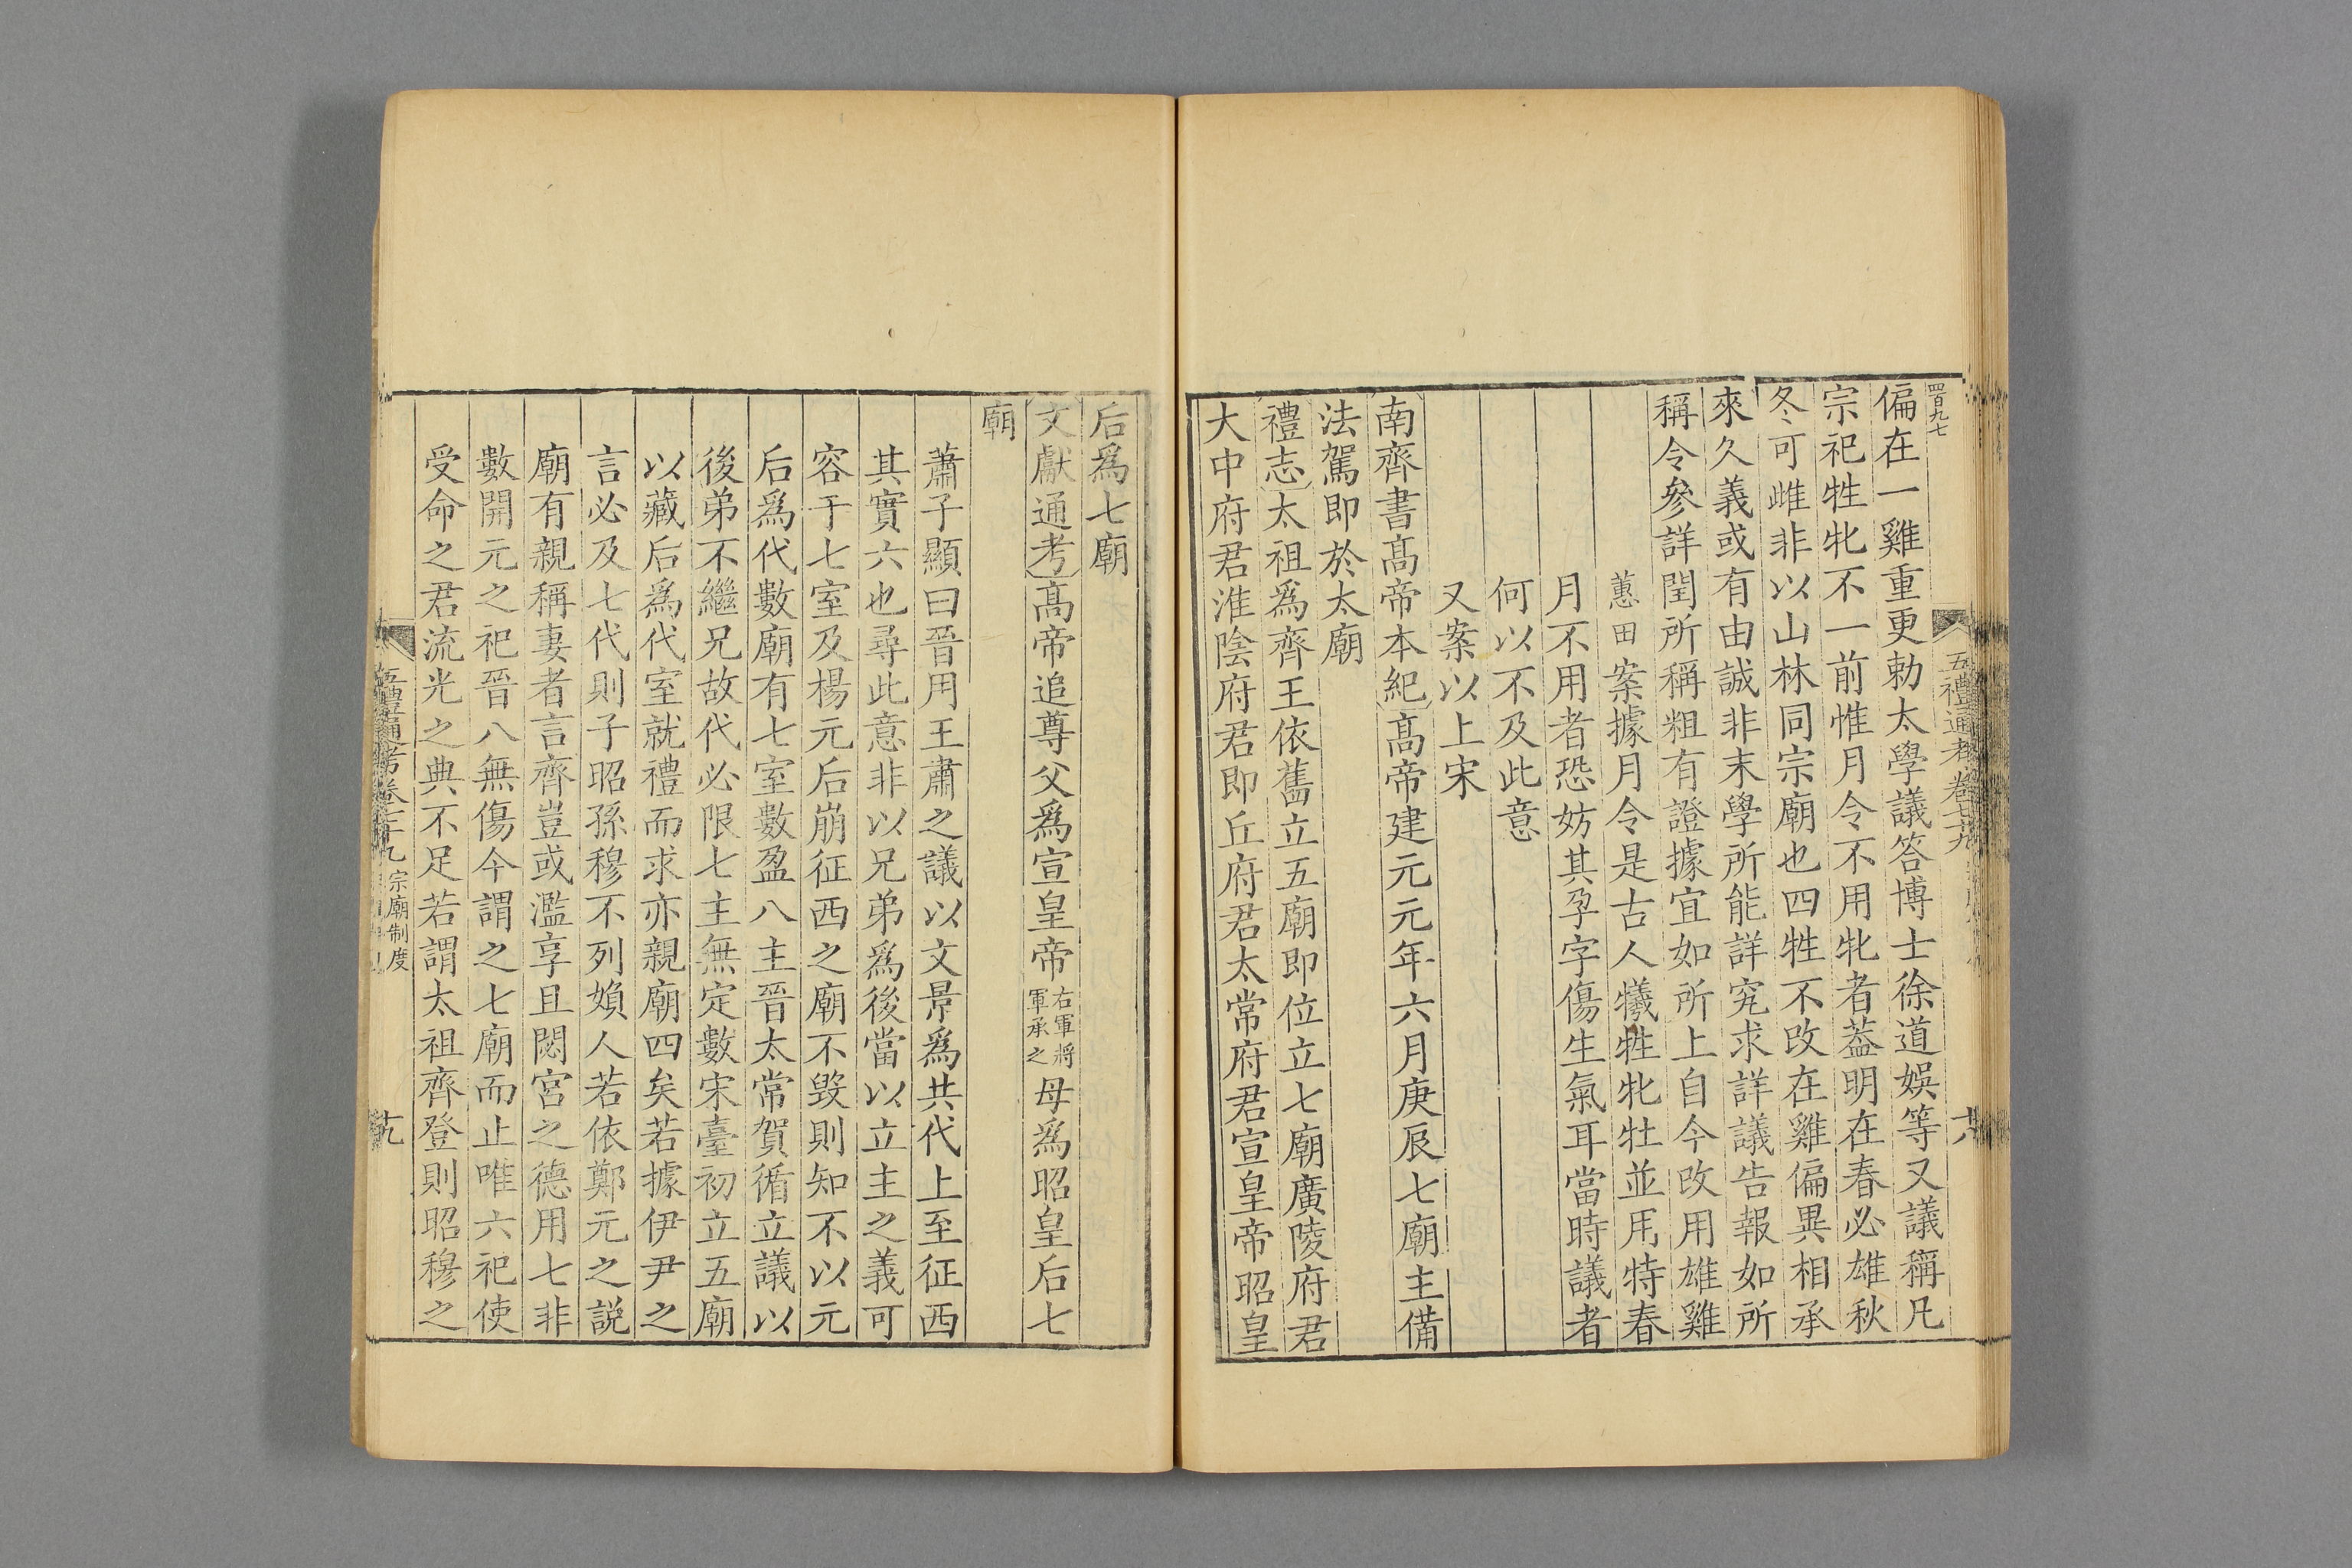 四百九七
五禮通考卷七九
十八
偏在一雞重更勅太學議答博士徐道娛等又議稱凡
宗祀牲牝不一前惟月令不用牝者葢明在春必雄秋
冬可雌非以山林同宗廟也四牲不改在雞偏異相承
來久義或有由誠非末學所能詳究求詳議告報如所
稱令參詳閏所稱粗有證據宜如所上自今改用雄雞
蕙田案據月令是古人犧牲牝牡並用特春
月不用者恐妨其孕字傷生氣耳當時議者
何以不及此意
又案以上宋
南齊書髙帝本紀髙帝建元元年六月庚辰七廟主備
法駕即於太廟
禮志太祖為齊王依舊立五廟即位立七廟廣陵府君
大中府君淮陰府君即丘府君太常府君宣皇帝昭皇
后爲七廟
文獻通考髙帝追尊父爲宣皇帝右軍將軍承之母爲昭皇后七
廟
蕭子顯曰晉用王肅之議以文景爲共代上至征西
其實六也尋此意非以兄弟爲後當以立主之義可
容于七室及楊元后崩征西之廟不毀則知不以元
后爲代數廟有七室數盈八主晉太常賀循立議以
後弟不繼兄故代必限七主無定數宋臺初立五廟
以藏后爲代室就禮而求亦親廟四矣若據伊尹之
言必及七代則子昭孫穆不列媍人若依鄭元之説
廟有親稱妻者言齊豈或濫享且閟宮之德用七非
數開元之祀晉八無傷今謂之七廟而止唯六祀使
受命之君流光之典不足若謂太祖齊登則昭穆之
五禮通考卷七十九
宗廟制度
十九